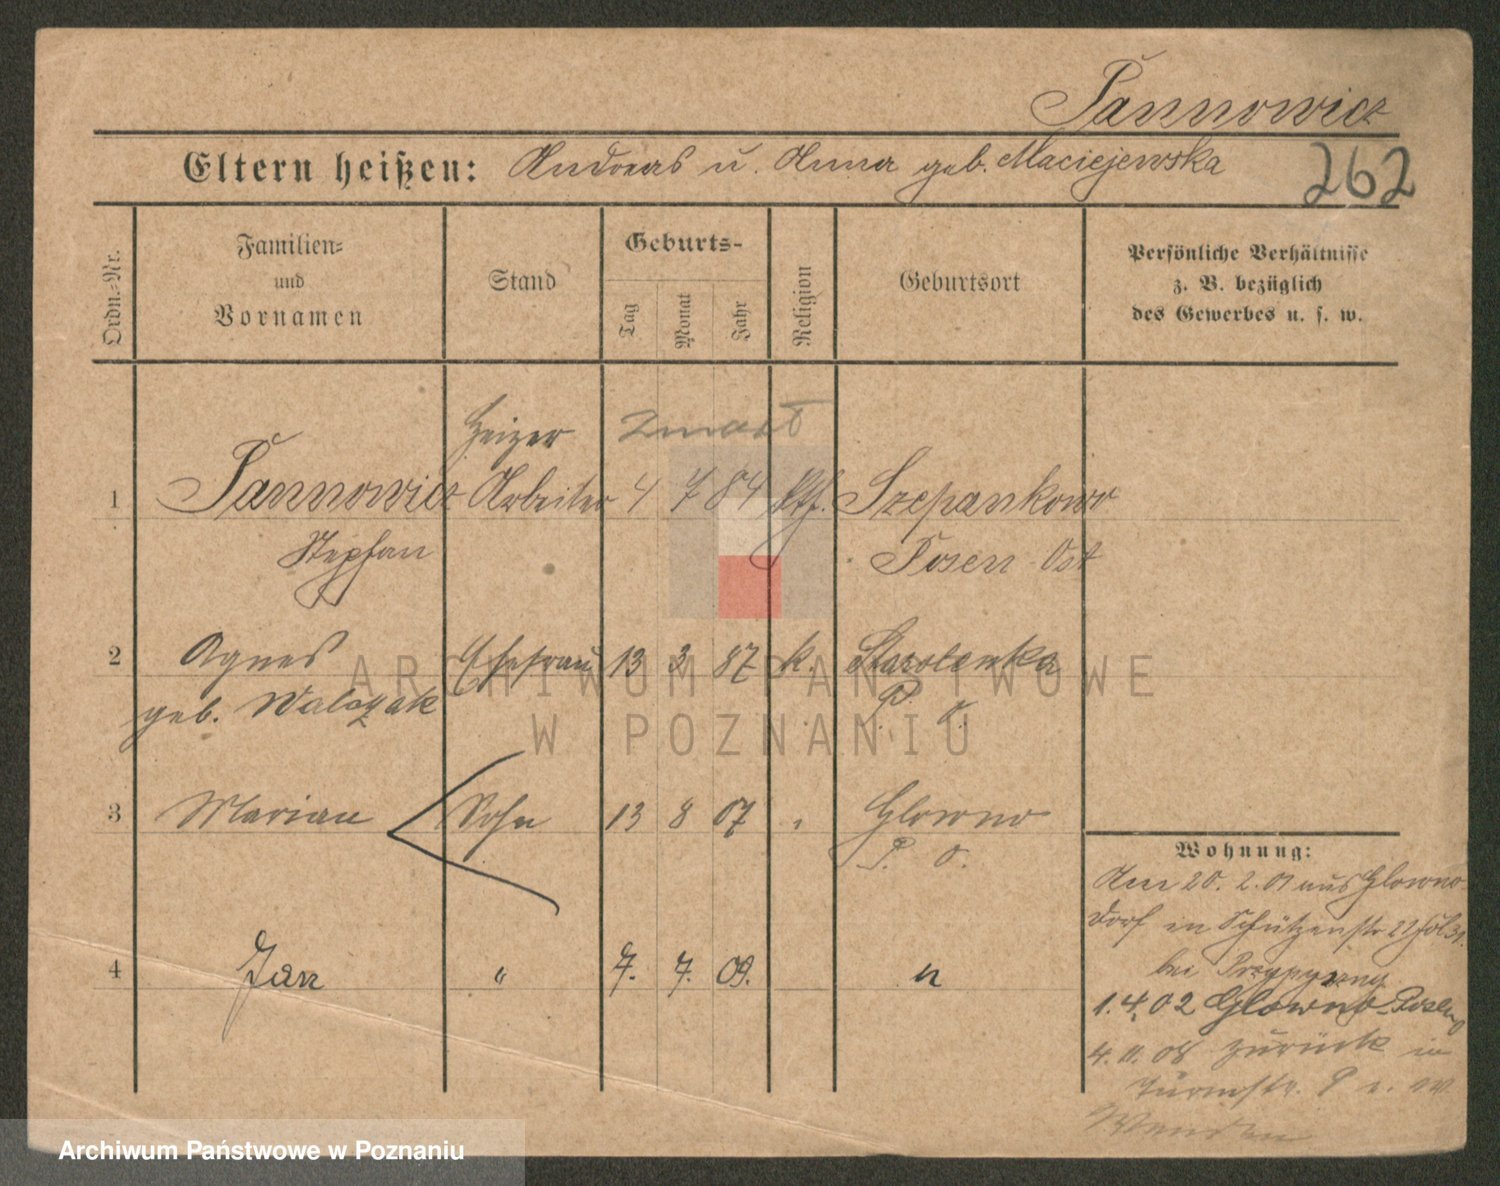 Pannowicz
Eltern heißen: Andreas u. Anna geb. Maciejewska
262
Ordn.-Nr.
Familien-
und
Vornamen
Stand
Geburts-
Tag
Monat
Jahr
Religion
Geburtsort
Persönliche Verhältnisse
z. B. bezüglich
des Gewerbes u. s. w.
Heizer zmarł
1 Pannowicz Arbeiter 4 7 84 kth. Szepankowo
Stephan Posen Ost
2 Agnes Ehefrau 13 3 87 k. Starolenka
geb. Walczak P. O.
3 Marian Sohn 13 8 07 Glowno
P. O.
4 Jan " 7. 7. 09. "
Wohnung:
Am 20. 2. 01 aus Glowno
Dorf in Schützenstr 22
bei
1.4.02 Glowno-Posen
4. 11. 08 zurück in
Turmstr. P
ARCHIWUM PAŃSTWOWE
W POZNANIU
Archiwum Państwowe w Poznaniu